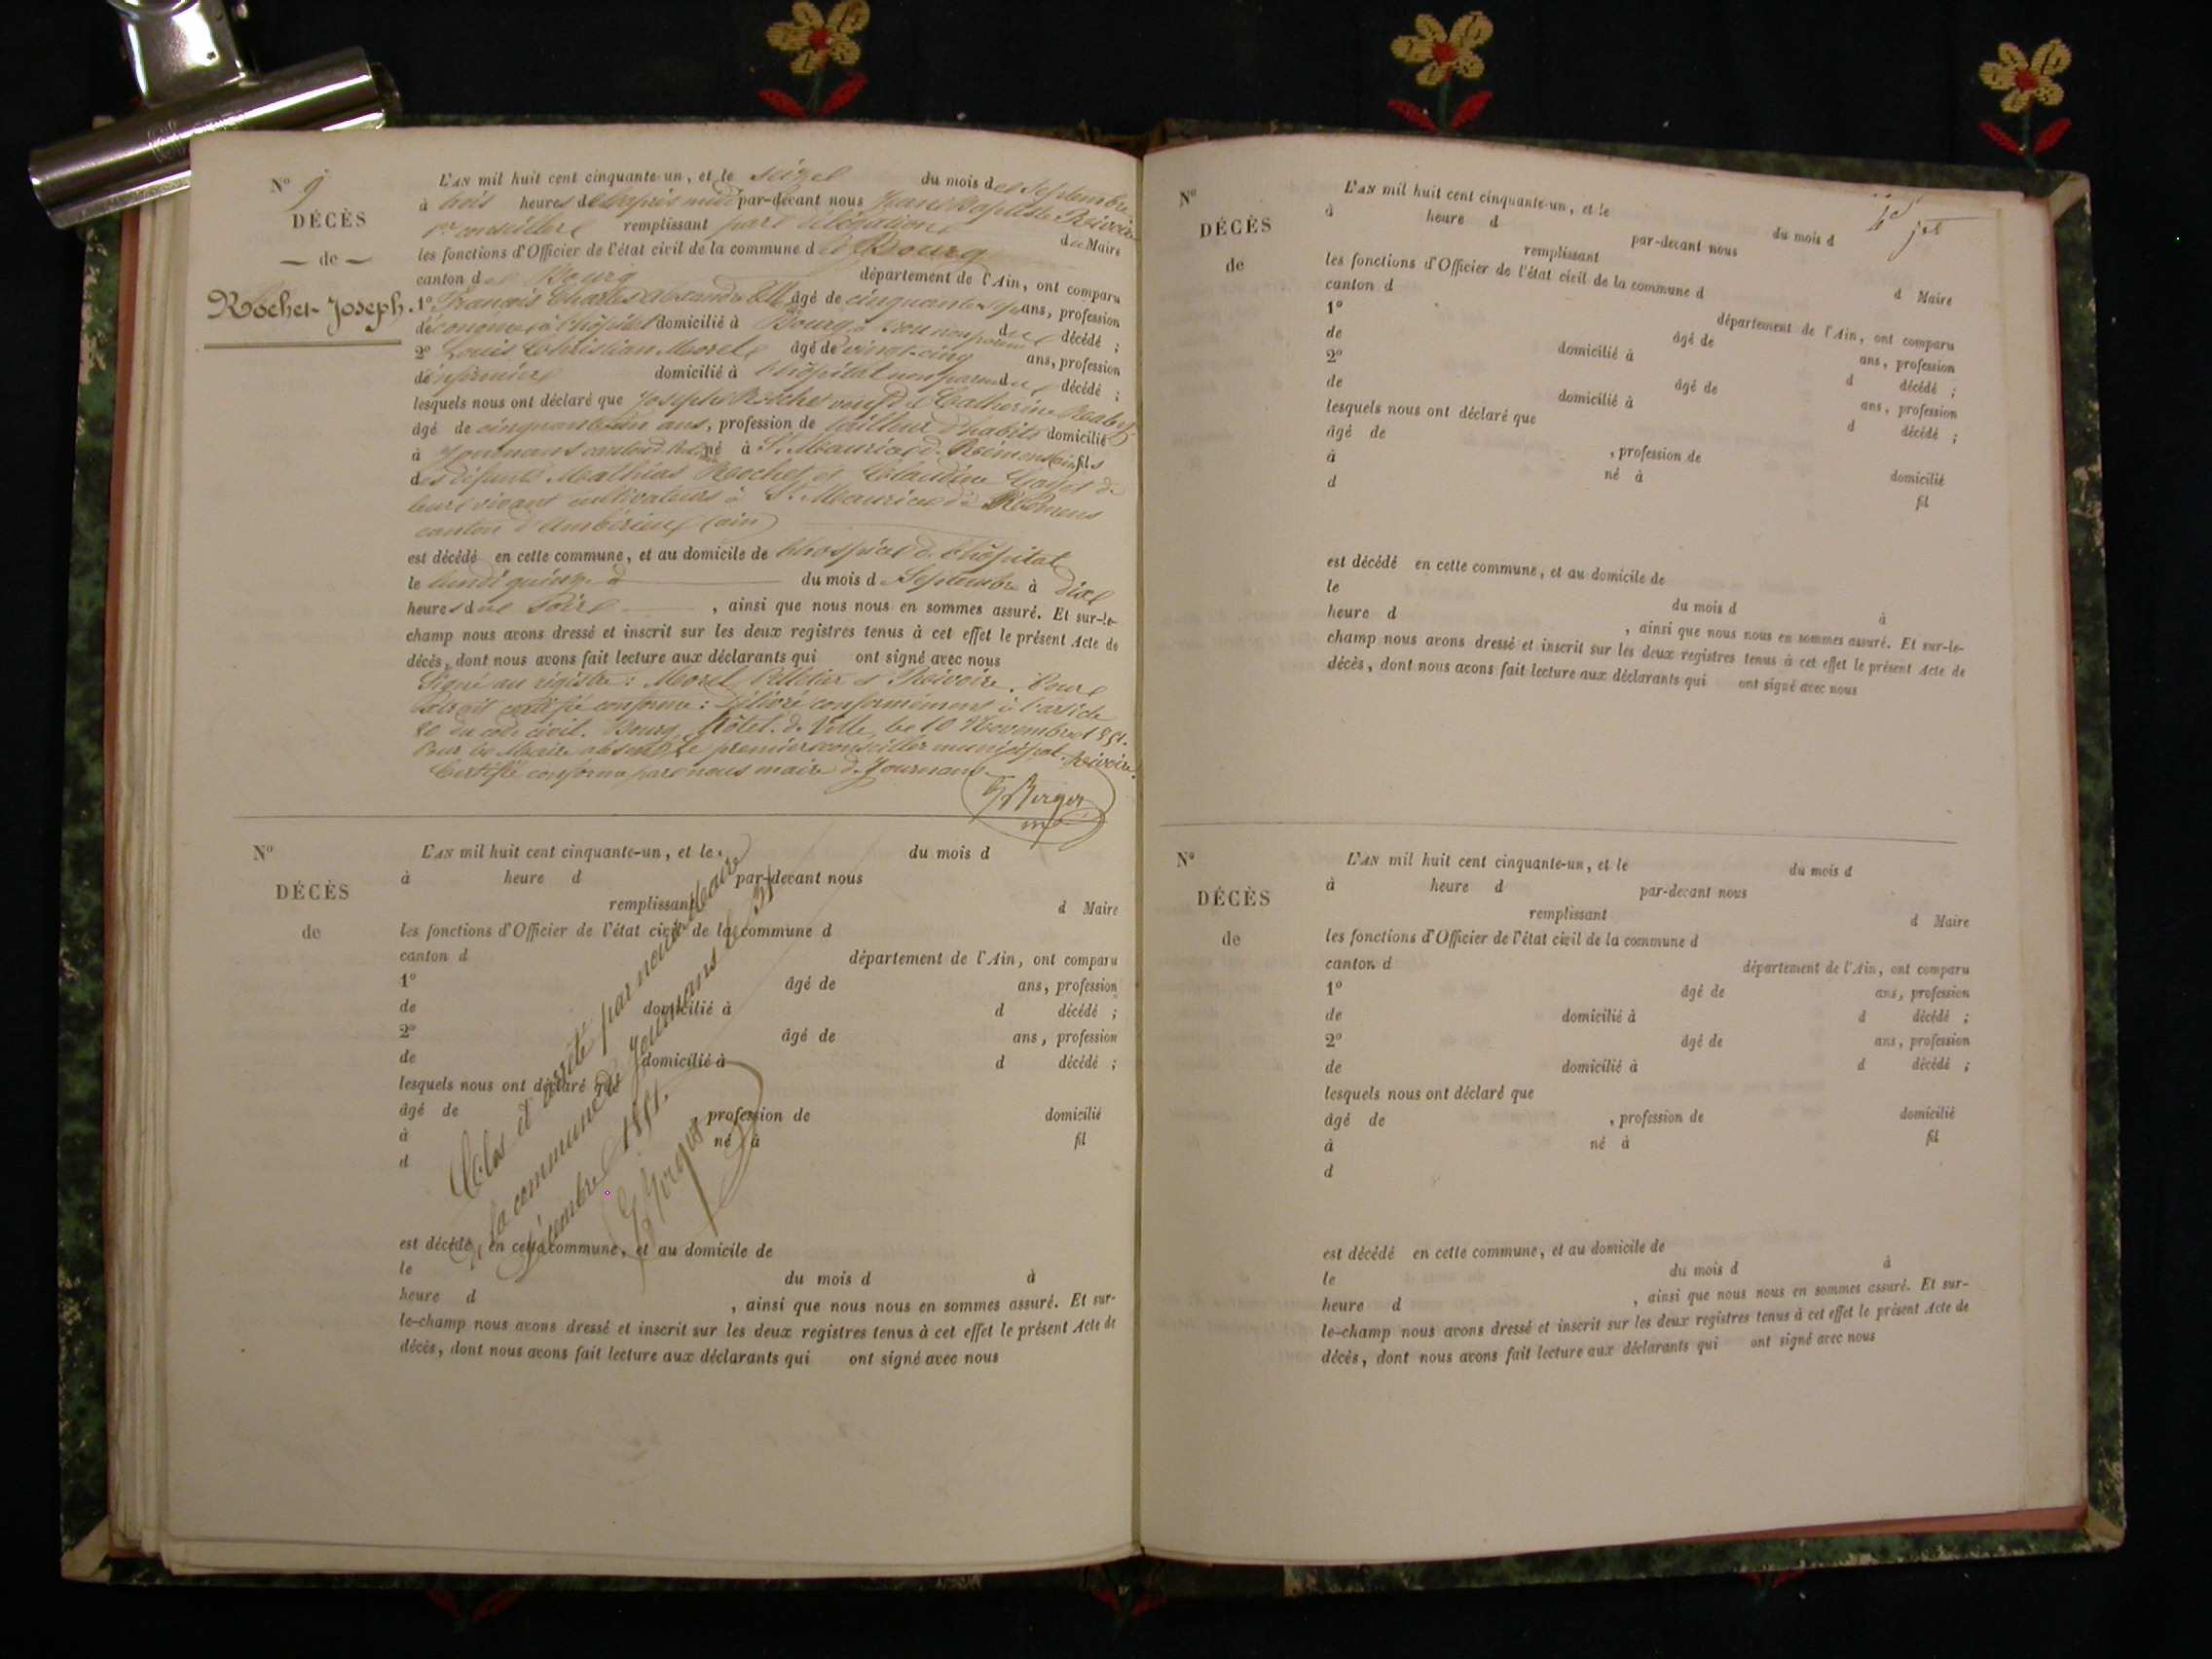 N° 9
DÉCÈS
— de —
Rochet Joseph.
L'AN mil huit cent cinquante-un, et le seize du mois de septembre
à trois heures de l'après midi par-devant nous Jean Baptiste Rivoire
1er conseiller remplissant par délégation
les fonctions d'Officier de l'état civil de la commune de Bourg du Maire
canton de Bourg département de l'Ain, ont comparu
1° François Charles Alexandre âgé de cinquante ans, profession
d'économe à l'hôpital domicilié à Bourg non parent du décédé ;
2° Louis Christian Morel âgé de vingt-cinq ans, profession
d'infirmier domicilié à l'hôpital non parent du décédé ;
lesquels nous ont déclaré que Joseph Rochet veuf de Catherine
âgé de cinquante un ans, profession de tailleur d'habits domicilié
à Journans canton de né à St. Maurice de Rémens (ain) fils
des défunts Mathias Rochet et Claudine Goyet de
leur vivant cultivateurs à St. Maurice de Rémens
canton d'Ambérieux (ain)
est décédé en cette commune, et au domicile de l'hospice de l'hôpital
le lundi quinze du mois de Septembre à dix
heures du soir , ainsi que nous nous en sommes assuré. Et sur-le-
champ nous avons dressé et inscrit sur les deux registres tenus à cet effet le présent Acte de
décès, dont nous avons fait lecture aux déclarants qui ont signé avec nous
Signé au registre : Morel Pelletier et Rivoire. Pour
extrait certifié conforme : Délivré conformément à l'article
80 du code civil. Bourg, Hôtel de Ville, le 10 Novembre 1851.
Pour le Maire absent, le premier conseiller municipal. Rivoire.
Certifié conforme par nous maire de Journans
Berger
N°
DÉCÈS
de
L'AN mil huit cent cinquante-un, et le du mois d
à heure d par-devant nous
remplissant d Maire
les fonctions d'Officier de l'état civil de la commune d
canton d département de l'Ain, ont comparu
1° âgé de ans, profession
de domicilié à d décédé ;
2° âgé de ans, profession
de domicilié à d décédé ;
lesquels nous ont déclaré que
âgé de profession de domicilié
à né à fil
d
est décédé en cette commune, et au domicile de
le du mois d à
heure d , ainsi que nous nous en sommes assuré. Et sur-
le-champ nous avons dressé et inscrit sur les deux registres tenus à cet effet le présent Acte de
décès, dont nous avons fait lecture aux déclarants qui ont signé avec nous
Clos et arrêté par nous Maire
de la commune de Journans le 31
Décembre 1851.
Berger
N°
DÉCÈS
de
L'AN mil huit cent cinquante-un, et le du mois d
à heure d par-devant nous
remplissant d Maire
les fonctions d'Officier de l'état civil de la commune d
canton d département de l'Ain, ont comparu
1° âgé de ans, profession
de domicilié à d décédé ;
2° âgé de ans, profession
de domicilié à d décédé ;
lesquels nous ont déclaré que
âgé de , profession de domicilié
à né à fil
d
est décédé en cette commune, et au domicile de
le du mois d à
heure d , ainsi que nous nous en sommes assuré. Et sur-le-
champ nous avons dressé et inscrit sur les deux registres tenus à cet effet le présent Acte de
décès, dont nous avons fait lecture aux déclarants qui ont signé avec nous
N°
DÉCÈS
de
L'AN mil huit cent cinquante-un, et le du mois d
à heure d par-devant nous
remplissant d Maire
les fonctions d'Officier de l'état civil de la commune d
canton d département de l'Ain, ont comparu
1° âgé de ans, profession
de domicilié à d décédé ;
2° âgé de ans, profession
de domicilié à d décédé ;
lesquels nous ont déclaré que
âgé de , profession de domicilié
à né à fil
d
est décédé en cette commune, et au domicile de
le du mois d à
heure d , ainsi que nous nous en sommes assuré. Et sur-
le-champ nous avons dressé et inscrit sur les deux registres tenus à cet effet le présent Acte de
décès, dont nous avons fait lecture aux déclarants qui ont signé avec nous